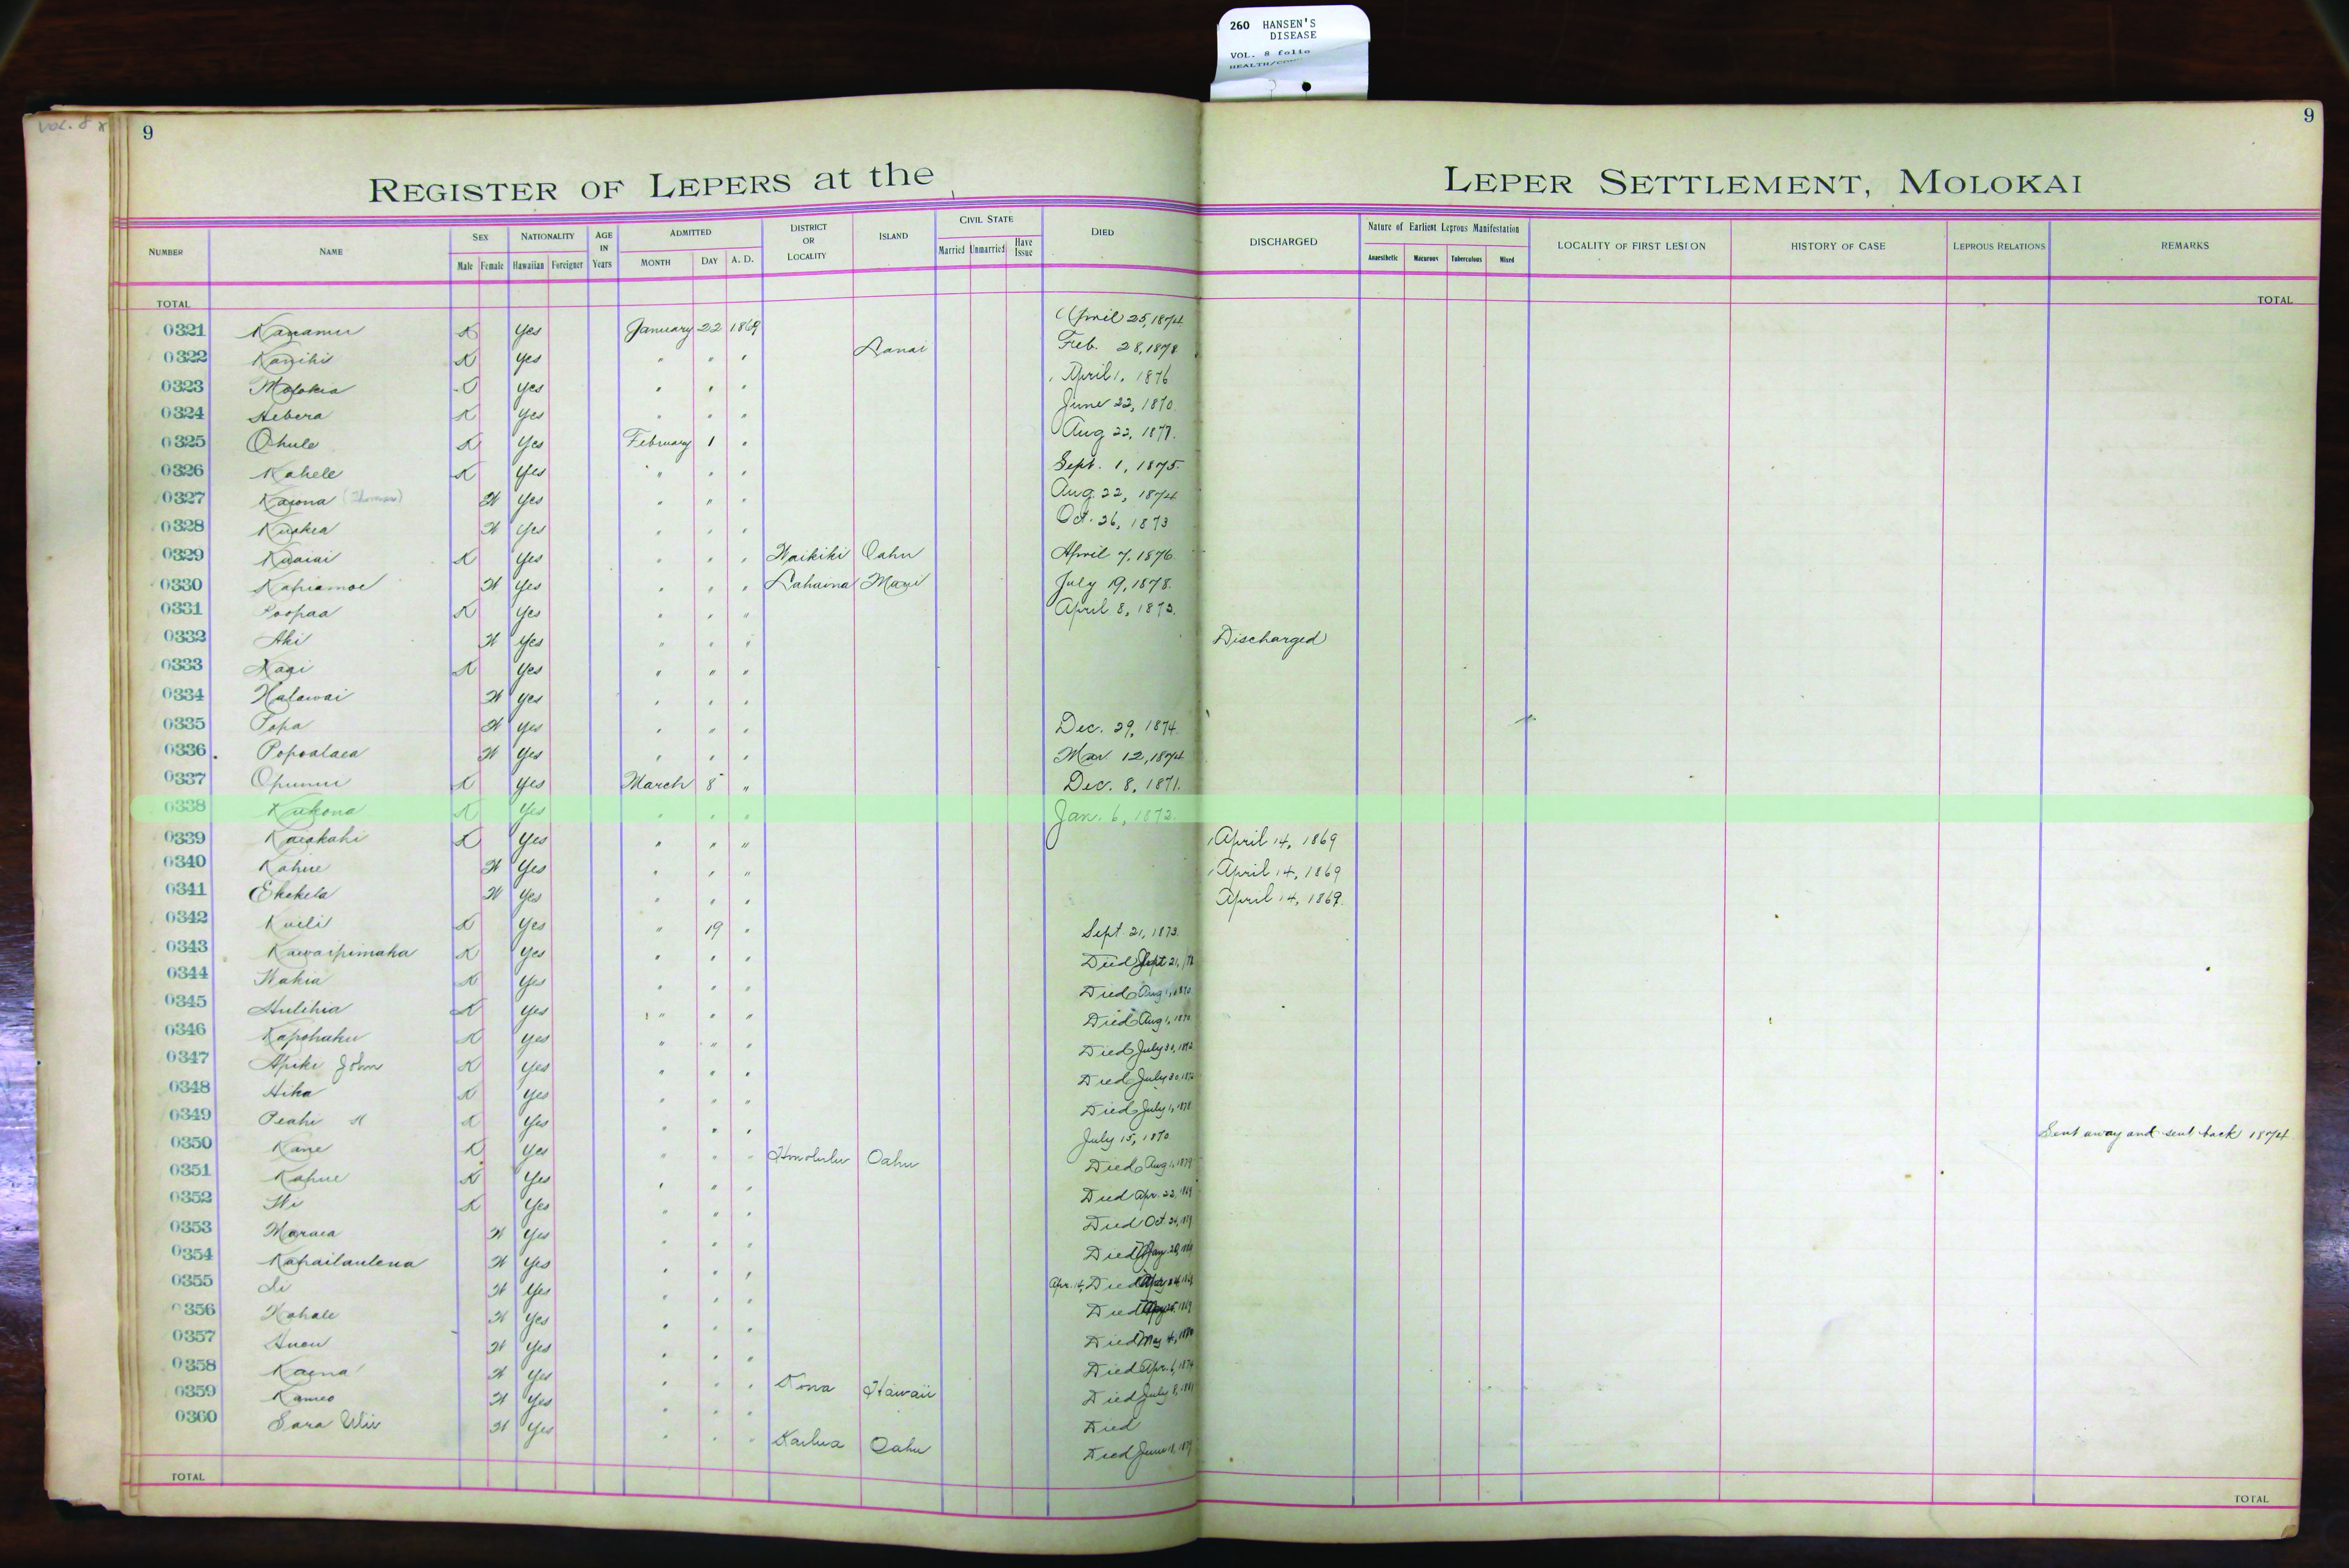 260 HANSEN'S
DISEASE
VOL. 8 folio
vol. 8
9
9
REGISTER OF LEPERS at the LEPER SETTLEMENT, MOLOKAI
NUMBER NAME SEX NATIONALITY AGE IN Years ADMITTED DISTRICT OR LOCALITY ISLAND CIVIL STATE DIED DISCHARGED Nature of Earliest Leprous Manifestation LOCALITY OF FIRST LESION HISTORY OF CASE LEPROUS RELATIONS REMARKS
Male Female Hawaiian Foreigner MONTH DAY A. D. Married Unmarried Have Issue Anaesthetic Macurous Tuberculous Mixed
TOTAL TOTAL
0321 Kanamu K Yes January 22 1869 April 25, 1874
0322 Kanihi K Yes " " " Lanai Feb. 28, 1878
0323 Molokia Yes " " " April 1, 1876
0324 Hebera K Yes " " " June 22, 1870
0325 Ohule K Yes February 1 " Aug 22, 1877.
0326 Kahele K Yes " " " Sept. 1, 1875.
0327 Kaiona (Thomas) W Yes " " " Aug. 22, 1874
0328 Kuakea W Yes " " " Oct. 26, 1873
0329 Kuaiai K Yes " " " Waikiki Oahu April 7, 1876
0330 Kahiamoe W Yes " " " Lahaina Maui July 19, 1878.
0331 Poopaa K Yes " " " April 8, 1873.
0332 Aki W Yes " " " Discharged
0333 Kaai K Yes " " "
0334 Halawai W Yes " " "
0335 Popa W Yes " " " Dec. 29, 1874
0336 Popoalaea W Yes " " " Mar 12, 1874
0337 Opunui K Yes March 8 " Dec. 8, 1871.
0338 Kukona K Yes " " " Jan. 6, 1872.
0339 Kaiakahi K Yes " " " April 14, 1869
0340 Kahue W Yes " " " April 14, 1869
0341 Ekekela W Yes " " " April 14, 1869.
0342 Kuili K Yes " 19 " Sept. 21, 1873.
0343 Kawaipimaka K Yes " " " Died Sept 21,
0344 Wakia K Yes " " " Died Aug 1, 1870
0345 Hulihia K Yes " " " Died Aug 1, 1870
0346 Kapohaku K Yes " " " Died July 30,
0347 Apiki John K Yes " " " Died July 30,
0348 Hika K Yes " " " Died July 1, 1878
0349 Peahi K Yes " " " July 15, 1870 Sent away and sent back 1874
0350 Kane K Yes " " " Honolulu Oahu Died Aug 1, 1879
0351 Kahue K Yes " " " Died Apr. 22, 1869
0352 Wi K Yes " " " Died Oct. 24,
0353 Maraea W Yes " " " Died
0354 Kahailaulena W Yes " " " Apr. 14, Died
0355 Li W Yes " " " Died
0356 Kahale W Yes " " " Died May 4,
0357 Anew W Yes " " " Died Apr. 6, 1874
0358 Kaena W Yes " " " Kona Hawaii Died July 8, 1881
0359 Kameo W Yes " " " Died
0360 Sara Ulii W Yes " " " Kailua Oahu Died June 18, 1879
TOTAL TOTAL